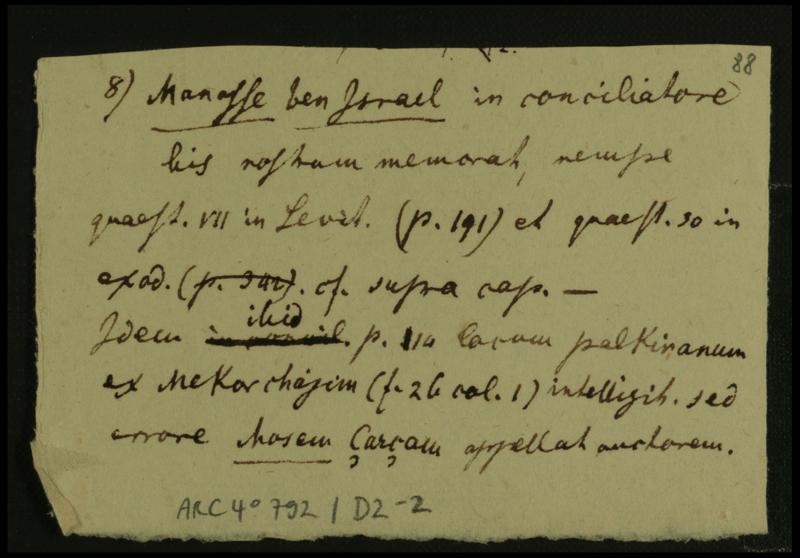 88
8) Manasse ben Israel in conciliatore
bis nostrum memorat, nempe
quaest. VII in Levit. (p. 191) et quaest. 50 in
exod. (p. 342). cf. supra cap. —
ibid
Idem p. 114 locum palkiranum
ex Mekor chajim (f. 26 col. 1) intelligit. sed
errore Mosem Carcam appellat auctorem.
ARC 4° 792 / D2-2